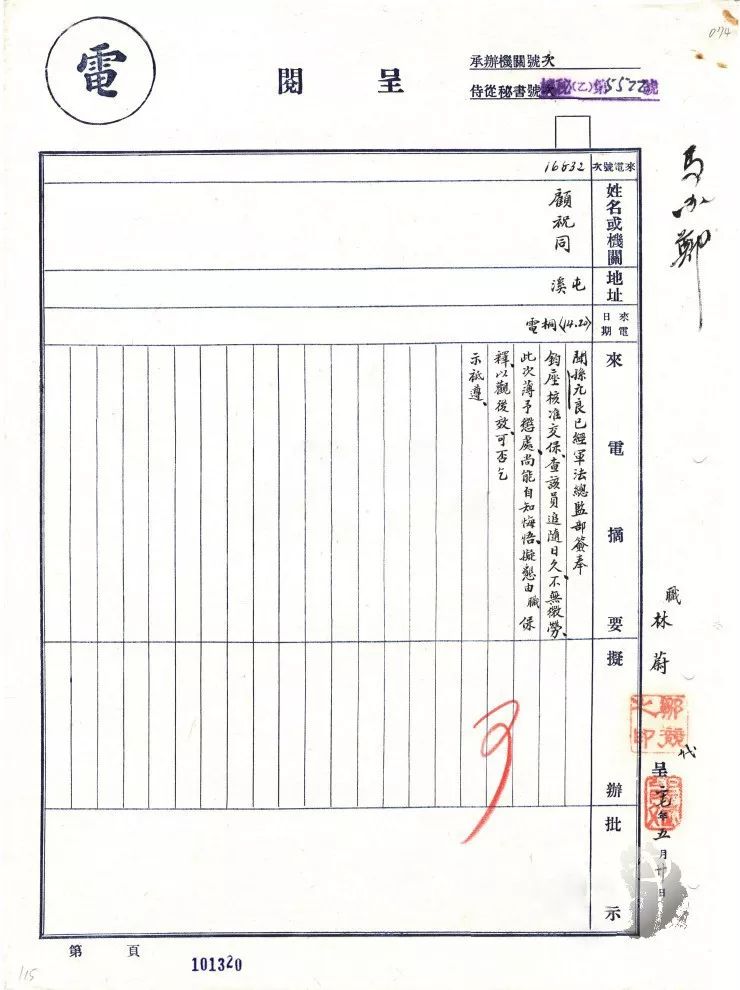 074
電
呈閱
承辦機關號次
侍從秘書號次
機秘(乙)第5522號
來電號次
16632
姓名或機關
顧祝同
地址
屯溪
來電日期
(14.20)
桐電
來電摘要
聞孫元良已經軍法總監部簽奉
鈞座核准交保、查該員追隨日久、不無微勞、
此次薄予懲處、尚能自知悔悟、擬懇由職保
釋、以觀後效、可否乞
示祇遵、
擬辦
可
批示
職林蔚
鄒競之印
代
呈
廿七年五月廿日
第頁
101320
115